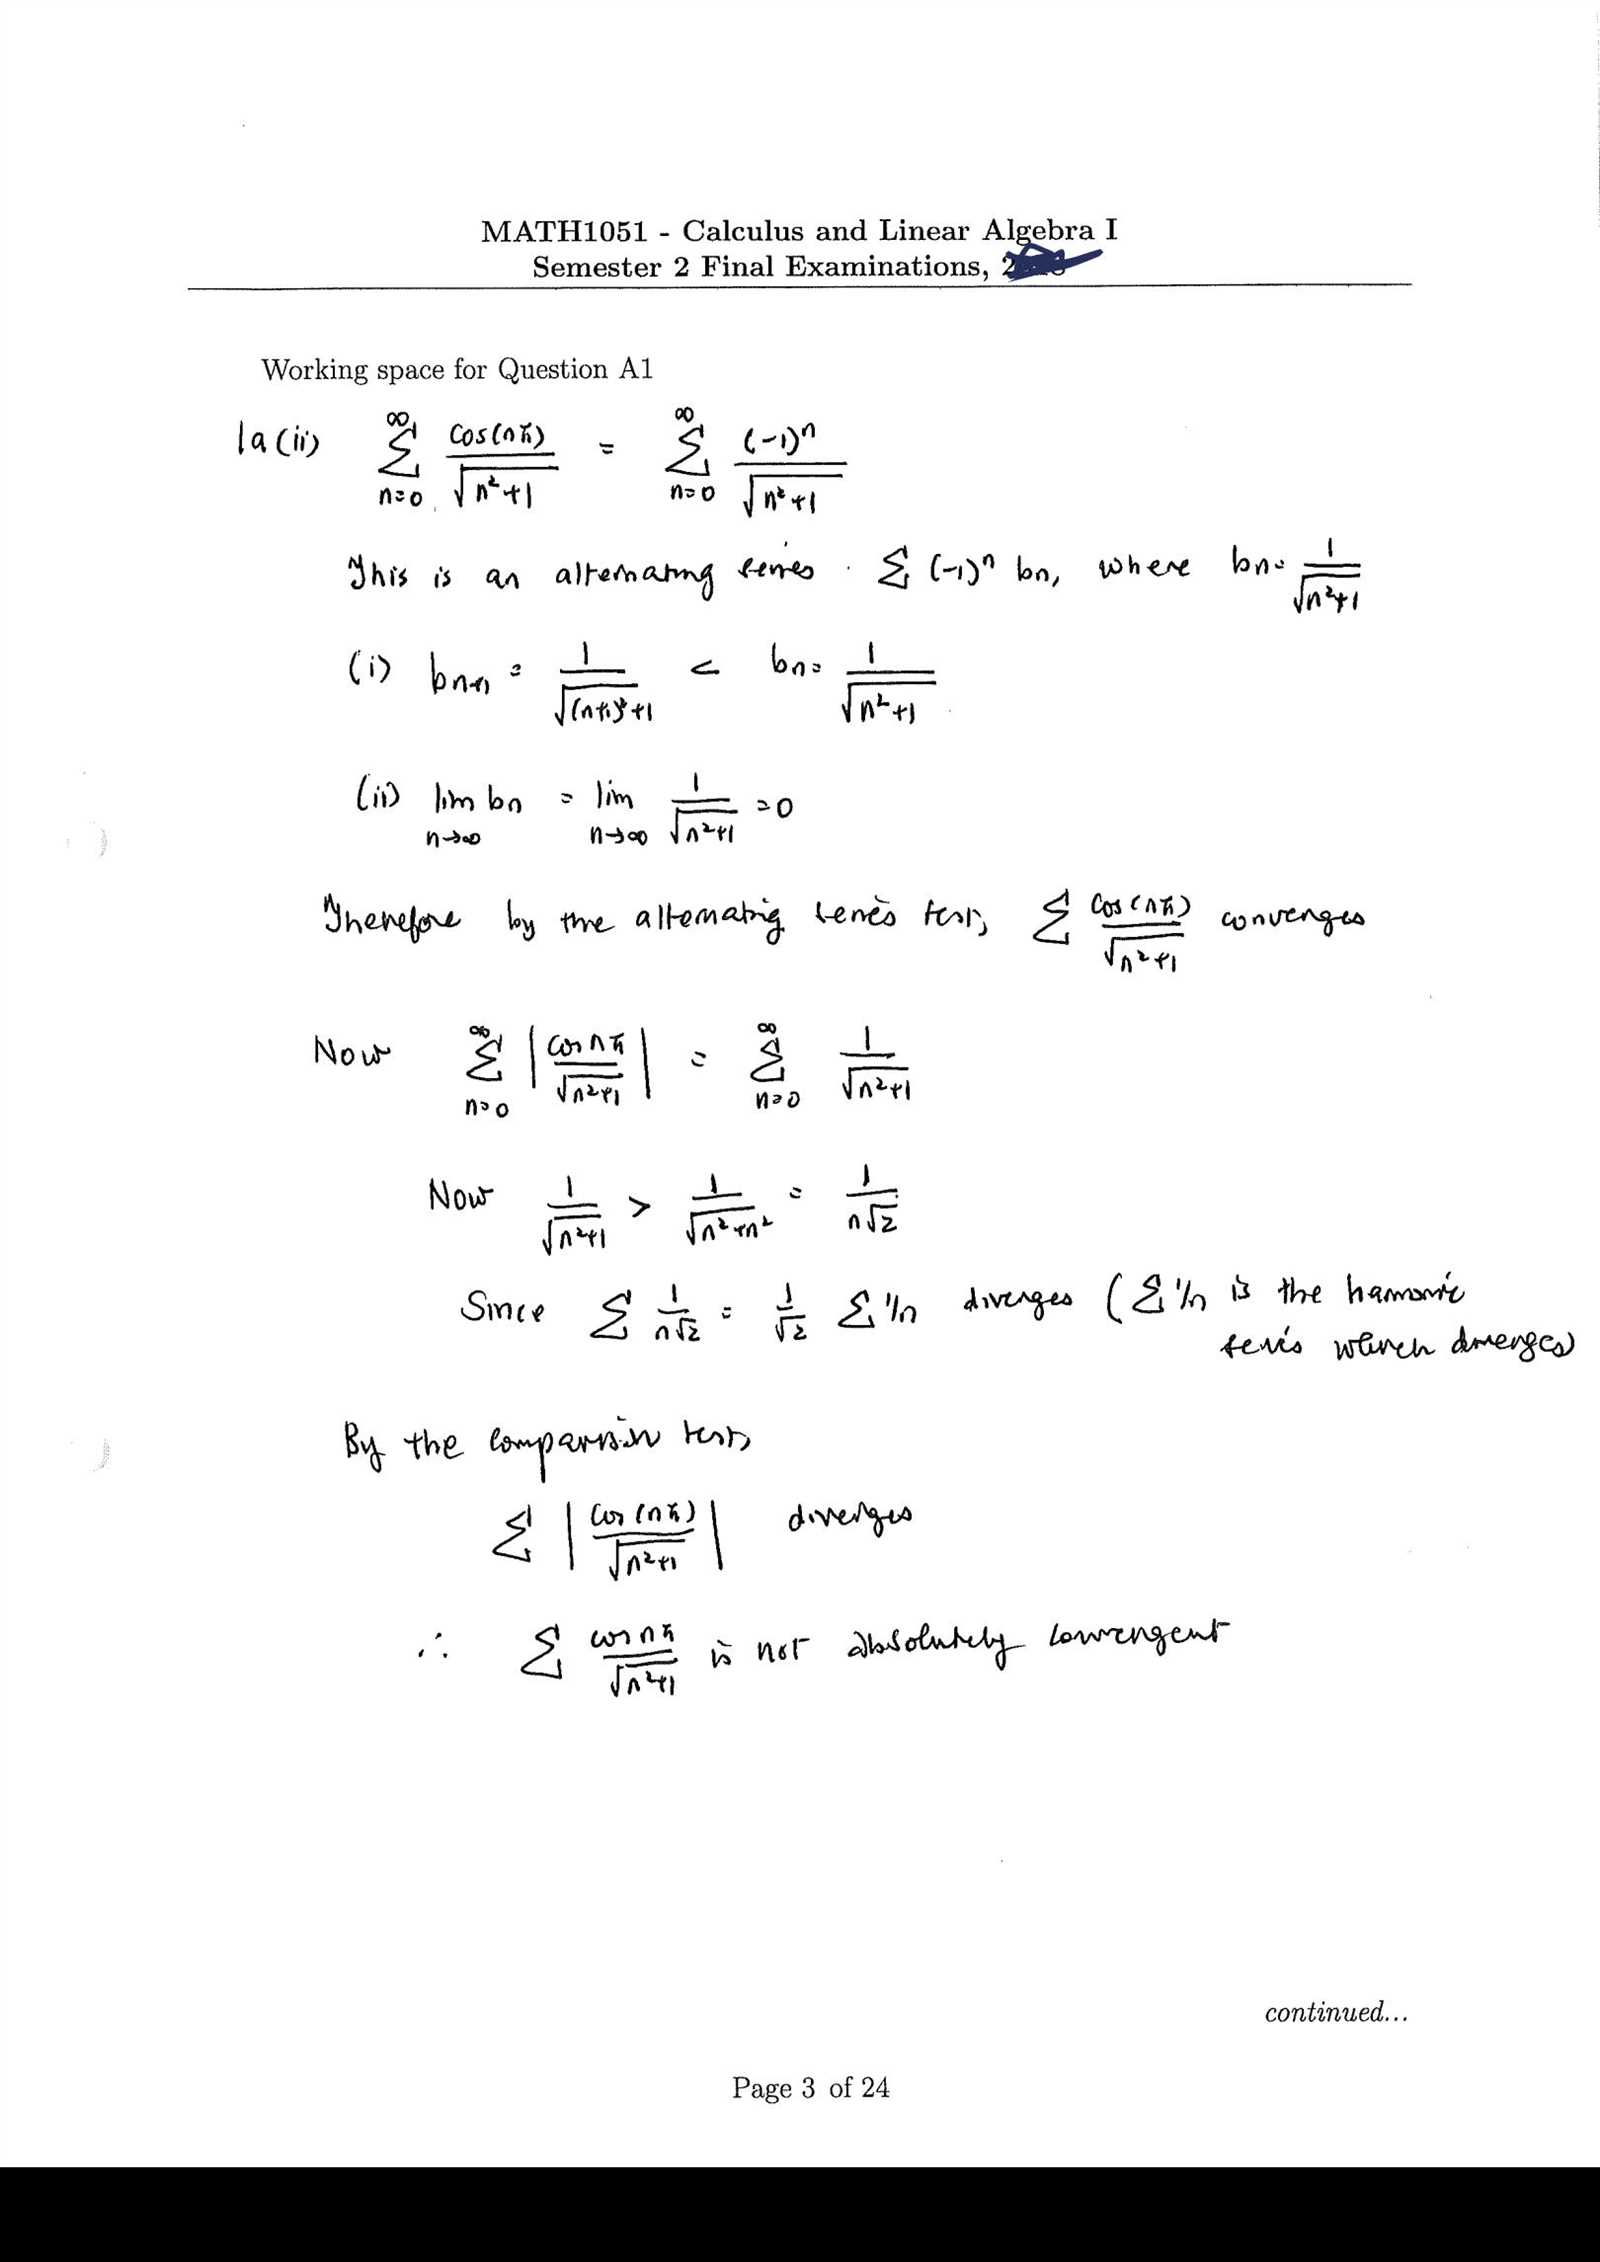 MATH1051 - Calculus and Linear Algebra I
Semester 2 Final Examinations,
Working space for Question A1
1a (ii) ∞∑n=0 cos(nπ)/√(n²+1) = ∞∑n=0 (-1)ⁿ/√(n²+1)
This is an alternating series. ∑ (-1)ⁿ bn, where bn = 1/√(n²+1)
(i) bn+1 = 1/√((n+1)²+1) < bn = 1/√(n²+1)
(ii) lim n→∞ bn = lim n→∞ 1/√(n²+1) = 0
Therefore by the alternating series test, ∑ cos(nπ)/√(n²+1) converges
Now ∞∑n=0 |cos nπ/√(n²+1)| = ∞∑n=0 1/√(n²+1)
Now 1/√(n²+1) > 1/√(n²+n²) = 1/n√2
Since ∑ 1/n√2 = 1/√2 ∑ 1/n diverges (∑ 1/n is the harmonic
series which diverges)
By the comparison test,
∑ |cos(nπ)/√(n²+1)| diverges
∴ ∑ cos nπ/√(n²+1) is not absolutely convergent
continued...
Page 3 of 24